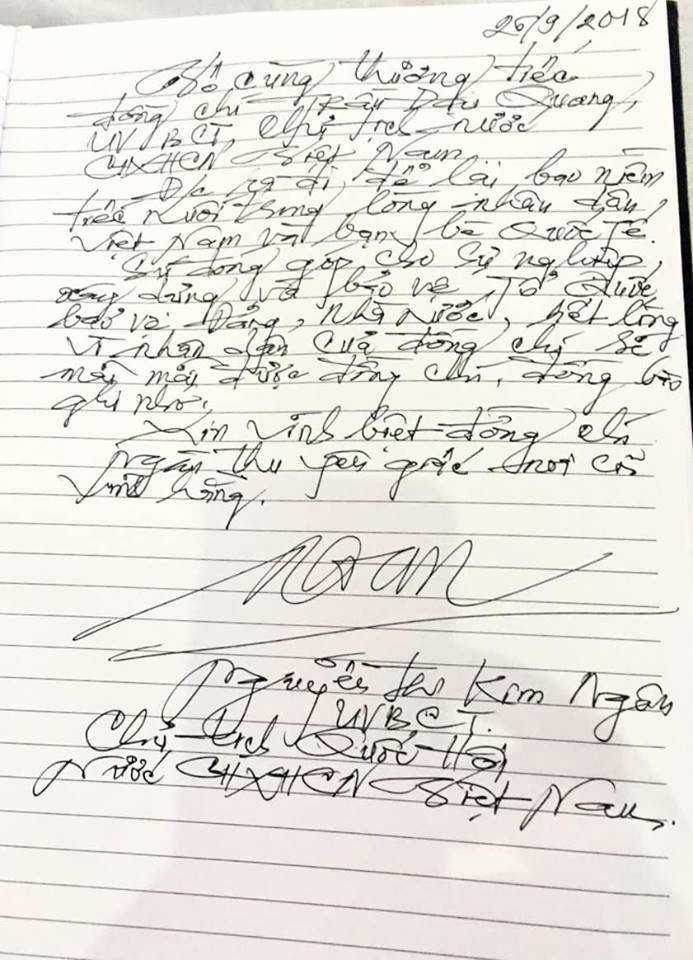 26/9/2018
Vô cùng thương tiếc
đồng chí Trần Đại Quang,
UV BCT, Chủ tịch nước
CHXHCN Việt Nam
Đ/c ra đi, để lại bao niềm
tiếc nuối trong lòng nhân dân
Việt Nam và bạn bè Quốc Tế.
Sự đóng góp cho sự nghiệp
xây dựng và bảo vệ Tổ Quốc
bảo vệ Đảng, Nhà nước, hết lòng
vì nhân dân của đồng chí sẽ
mãi mãi được đồng chí, đồng bào
ghi nhớ.
Xin vĩnh biệt đồng chí
ngàn thu yên giấc nơi cõi
vĩnh hằng.
Ngân
Nguyễn Thị Kim Ngân
UVBCT.
Chủ tịch Quốc Hội
Nước CHXHCN Việt Nam.